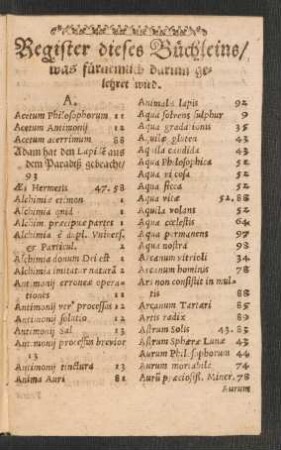 Register dieses Büchleins/
was fürnemlich darinn ge-
lehret wird.
A.
Acetum Philosophorum 11
Acetum Antimonij 12
Acetum acerrimum 88
Adam hat den Lapidē aus
dem Paradiß gebracht/
93
Æs Hermetis 47. 58
Alchimiæ etimon 1
Alchimia quid 1
Alchim. præcipuæ partes 1
Alchimia è dupl. Univers.
& Particul. 2
Alchimia donum Dei est 1
Alchimia imitatur naturā 2
Antimonij erroneæ opera-
tiones 11
Antimonij verꝰ processus 12
Antimonij solutio 12
Antimonij Sal 13
Antimonij processus brevior
13
Antimonij tinctura 13
Anima Auri 81
Animalis lapis 92
Aqua solvens sulphur 9
Aqua gradationis 35
A. vitæ plurea 43
Aquila candida 43
Aqua Philosophica 52
Aqua vicosa 52
Aqua sicca 52
Aqua vitæ 52. 88
Aquila volans 52
Aqua cœlestis 64
Aqua permanens 97
Aqua nostra 98
Arcanum vitrioli 34
Arcanum hominis 78
Ars non consistit in mul-
tis 88
Arcanum Tartari 85
Artis radix 89
Astrum Solis 43. 83
Astrum Sphæræ Lunæ 43
Aurum Philosophorum 44
Aurum mortabile 74
Aurū præciosiss. Miner. 78
Aurum